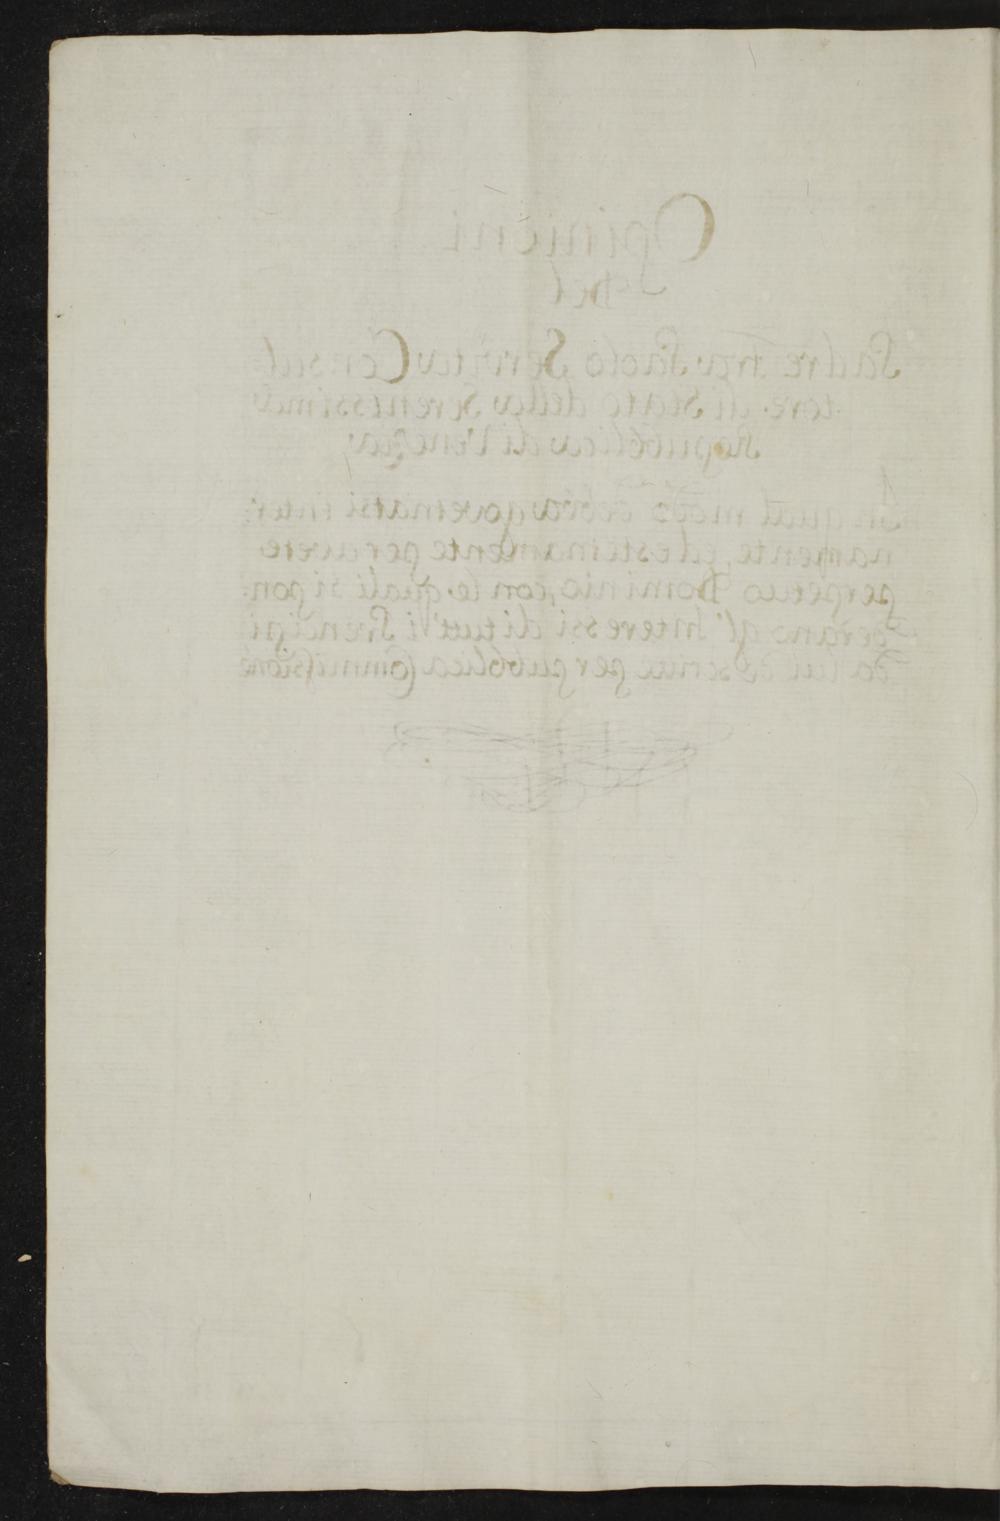 Opinioni
Del
Padre Fra Paolo Servita Consul
tore di Stato della Serenissima
Republica di Venezia,
In qual modo debba governarsi inter,
namente, ed esternamente per avere
perpetuo Dominio, con le quali si pon,
derano gl' Interessi di tutti i Prencipi
Da lui per pubblica Commissione